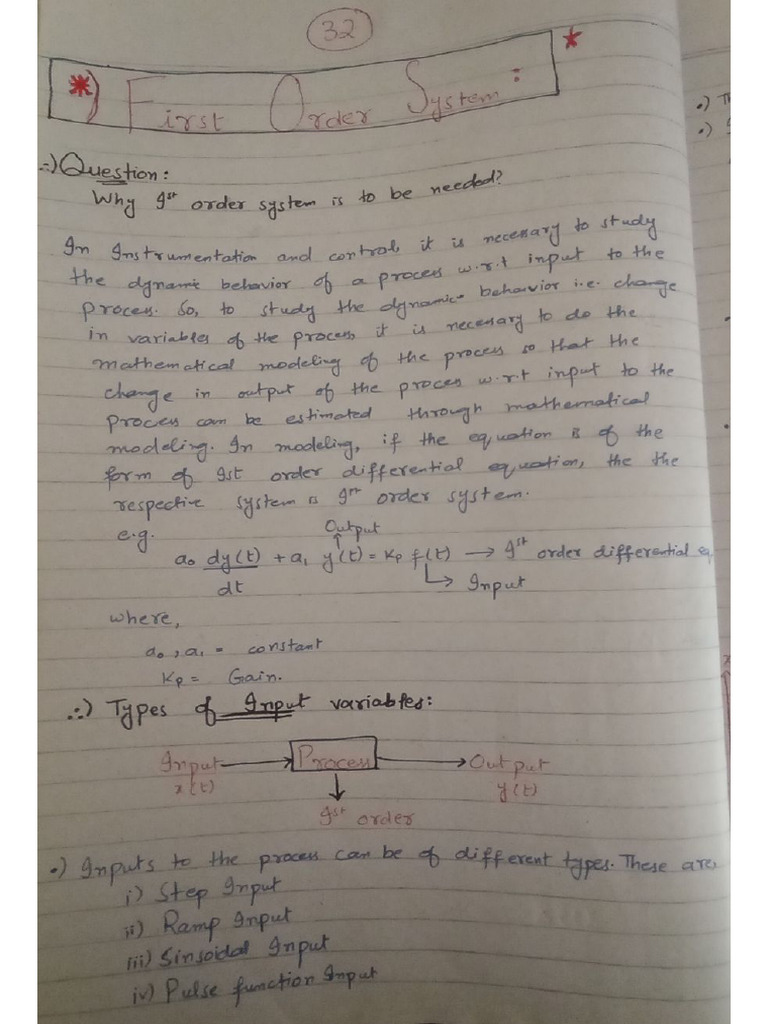 32
*) First Order System: *
∴) Question:
Why Ist order system is to be needed?
In Instrumentation and control, it is necessary to study
the dynamic behavior of a process w.r.t input to the
process. So, to study the dynamic behavior i.e. change
in variables of the process, it is necessary to do the
mathematical modeling of the process so that the
change in output of the process w.r.t input to the
process can be estimated through mathematical
modeling. In modeling, if the equation is of the
form of Ist order differential equation, the the
respective system is Ist order system.
e.g.
Output
a₀ dy(t)/dt + a₁ y(t) = Kp f(t) → Ist order differential eq
Input
where,
a₀, a₁ = constant
Kp = Gain.
∴) Types of Input variables:
Input → Process → Output
x(t) y(t)
Ist order
•) Inputs to the process can be of different types. These are,
i) Step Input
ii) Ramp Input
iii) Sinsoidal Input
iv) Pulse function Input